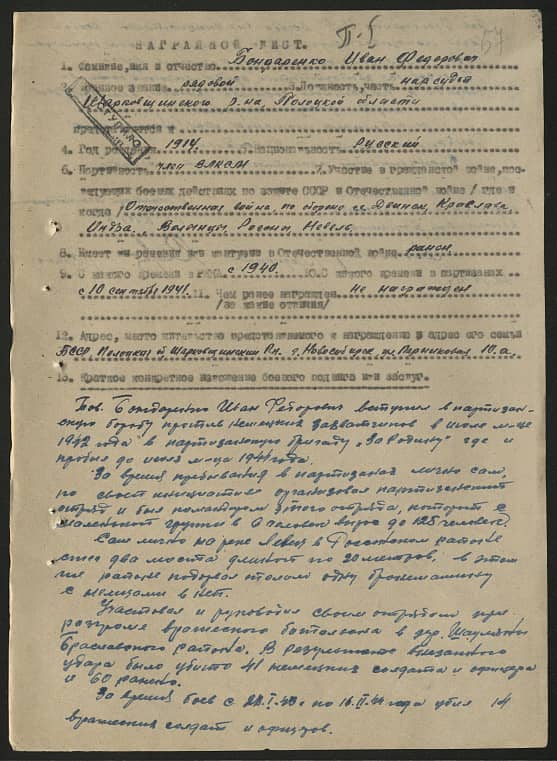 П-5
57
НАГРАДНОЙ ЛИСТ.
1. Фамилия, имя и отчество Бондаренко Иван Федорович
военное звание рядовой 3. Должность, часть нар судья
Шарковщинского р-на, Полоцкой области
4. Год рождения 1914 национальность Русский
6. Партийность член ВЛКСМ 7. Участие в гражданской войне, пос-
ледующих боевых действиях по защите СССР и Отечественной войне /где и
когда/ Отечественная война, по обороне г. Двинск, Краслава,
Индра, Волынцы, Россоны, Невель
8. Имеет ли ранения или контузии в Отечественной войне ранен
9. С какого времени в РККА с 1940. 10. С какого времени в партизанах
с 10 сентября 1941. 11. Чем ранее награжден Не награжден
/за какие отличия/
12. Адрес, место жительство представляемого к награждению и адрес его семьи
БССР Полоцкая Шарковщинский Рн. г. Новосибирск ул. 10.а.
13. Краткое конкретное изложение боевого подвига или заслуг.
Тов. Бондаренко Иван Федорович вступил в партизан-
скую борьбу против немецких захватчиков в июле м-це
1942 года в партизанскую бригаду "За Родину" где и
пробыл до июля м-ца 1944 года.
За время пребывания в партизанах лично сам,
по своей инициативе организовал партизанский
отряд и был этого отряда, который с
маленькой группы в 6 человек вырос до 125 человек.
Сам лично на реке в районе
сжег два моста длиной по 20 метров, в этом
же районе подорвал толом одну бронемашину
с немцами в ней.
Участвовал и руководил своим отрядом при
разгроме вражеского батальона в дер. Шауляны
Браславского района. В результате внезапного
удара было убито 41 немецких солдата и офицера
и 60 ранено.
За время боев с по 16.II.44 года убил 14
вражеских солдат и офицеров.